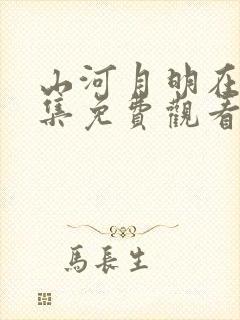 山河月明在
集免費觀看
馬長生